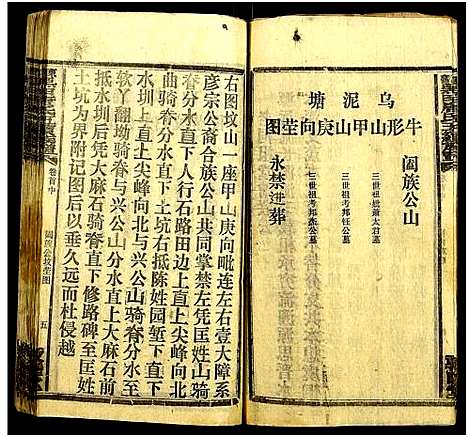 乌泥塘
牛形山甲山庚向茔图
阖族公山
三世祖妣萧太君墓
三世祖考邦钰公墓
三世祖考邦燕公墓
永禁进葬
右图坟山一座甲山庚向毗连左右壹大障系
彦宗公裔合族公山共同掌禁左凭匡姓山骑
脊分水直下人行石路田边直上直上尖峰向北
曲骑脊分水直下土坑右抵陈姓园堑下直下
水圳直上尖峰向北与兴公山骑脊分水至
软丫翻坳骑脊与兴公山分水直下大麻石前
抵水圳后凭大麻石骑脊直下修路碑至匡姓
土坑为界附记图后以垂久远而杜侵越
卷首中
阖族公坟茔图
五